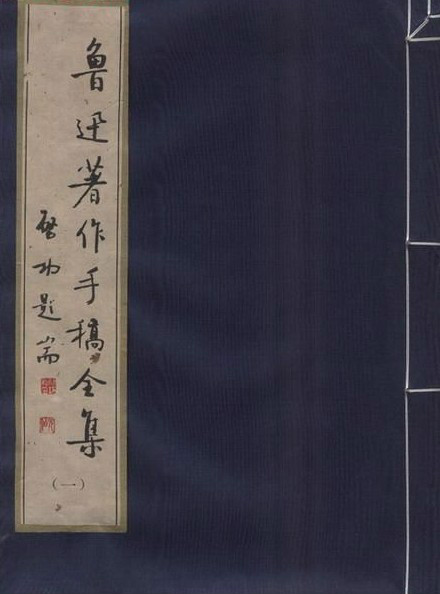 鲁迅著作手稿全集
(一)
启功题耑